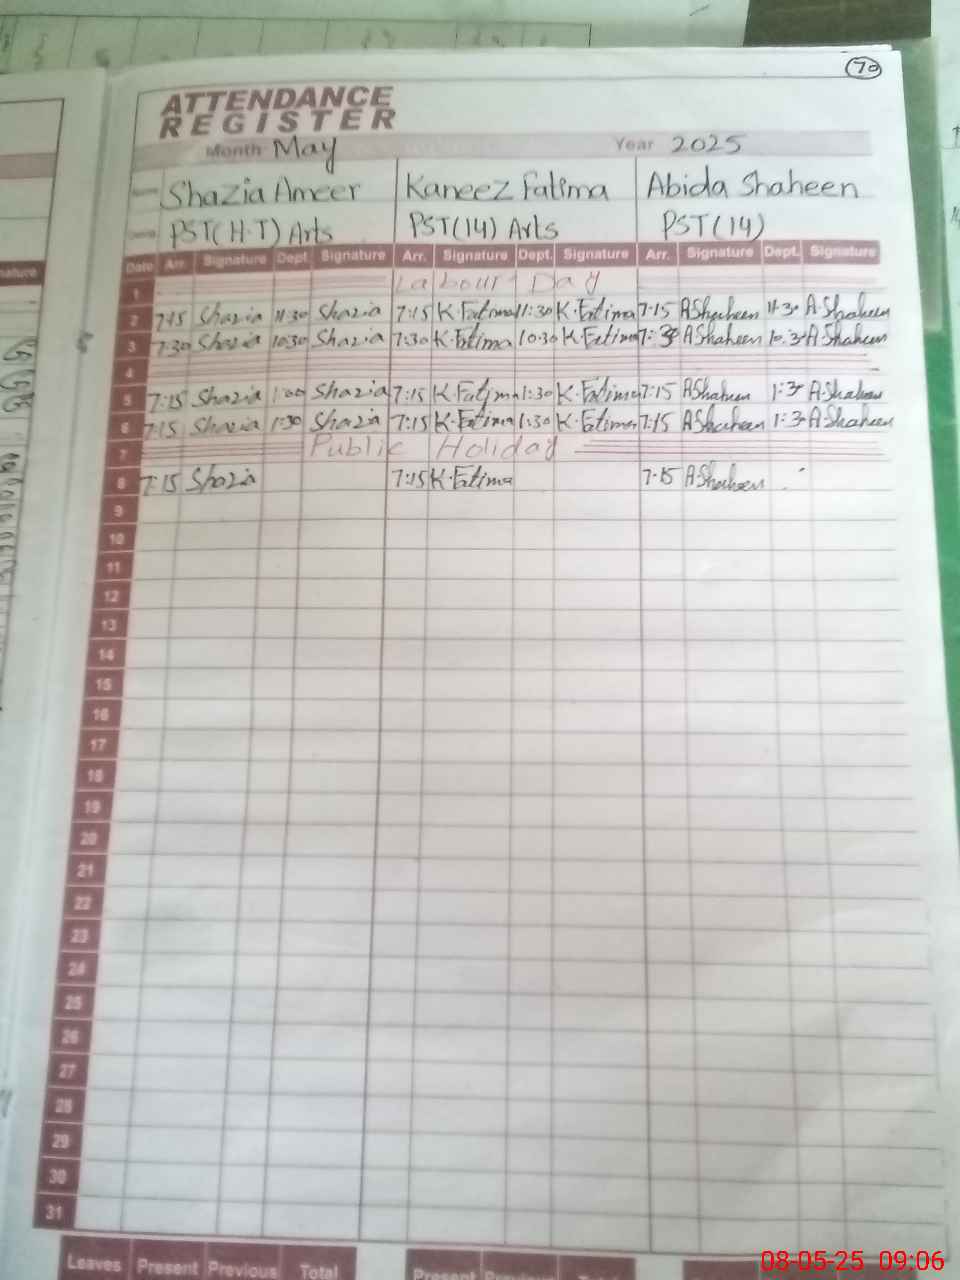 70
ATTENDANCE
REGISTER
Month May Year 2025
Name Shazia Ameer Kaneez Fatima Abida Shaheen
PST(H.T) Arts PST(14) Arts PST(14)
Date Arr. Signature Dept. Signature Arr. Signature Dept. Signature Arr. Signature Dept. Signature
1 Labour Day
2 7:15 Shazia 11:30 Shazia 7:15 K.Fatima 11:30 K.Fatima 7:15 AShaheen 11:30 A.Shaheen
3 7:30 Shazia 10:30 Shazia 7:30 K.Fatima 10:30 K.Fatima 7:30 AShaheen 10:30 A.Shaheen
4
5 7:15 Shazia 1:00 Shazia 7:15 K.Fatima 1:30 K.Fatima 7:15 AShaheen 1:30 A.Shaheen
6 7:15 Shazia 1:30 Shazia 7:15 K.Fatima 1:30 K.Fatima 7:15 AShaheen 1:30 AShaheen
7 Public Holiday
8 7:15 Shazia 7:15 K.Fatima 7:15 AShaheen
9
10
11
12
13
14
15
16
17
18
19
20
21
22
23
24
25
26
27
28
29
30
31
Leaves Present Previous Total Present Previous Total
08-05-25 09:06